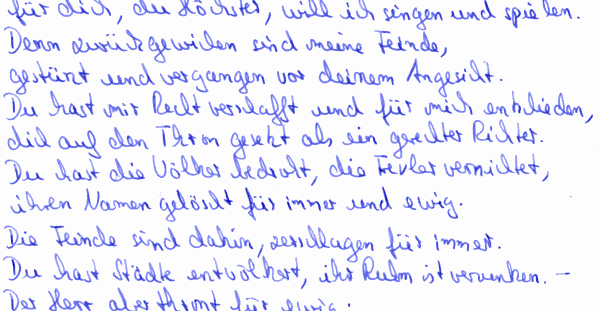 für dich, du Höchster, will ich singen und spielen.
Denn zurückgewichen sind meine Feinde,
gestürzt und vergangen vor deinem Angesicht.
Du hast mir Recht verschafft und für mich entschieden,
dich auf den Thron gesetzt als ein gerechter Richter.
Du hast die Völker bedroht, die Frevler vernichtet,
ihren Namen gelöscht für immer und ewig.
Die Feinde sind dahin, zerschlagen für immer.
Du hast Städte entvölkert, ihr Ruhm ist versunken. –
Der Herr aber thront für ewig;